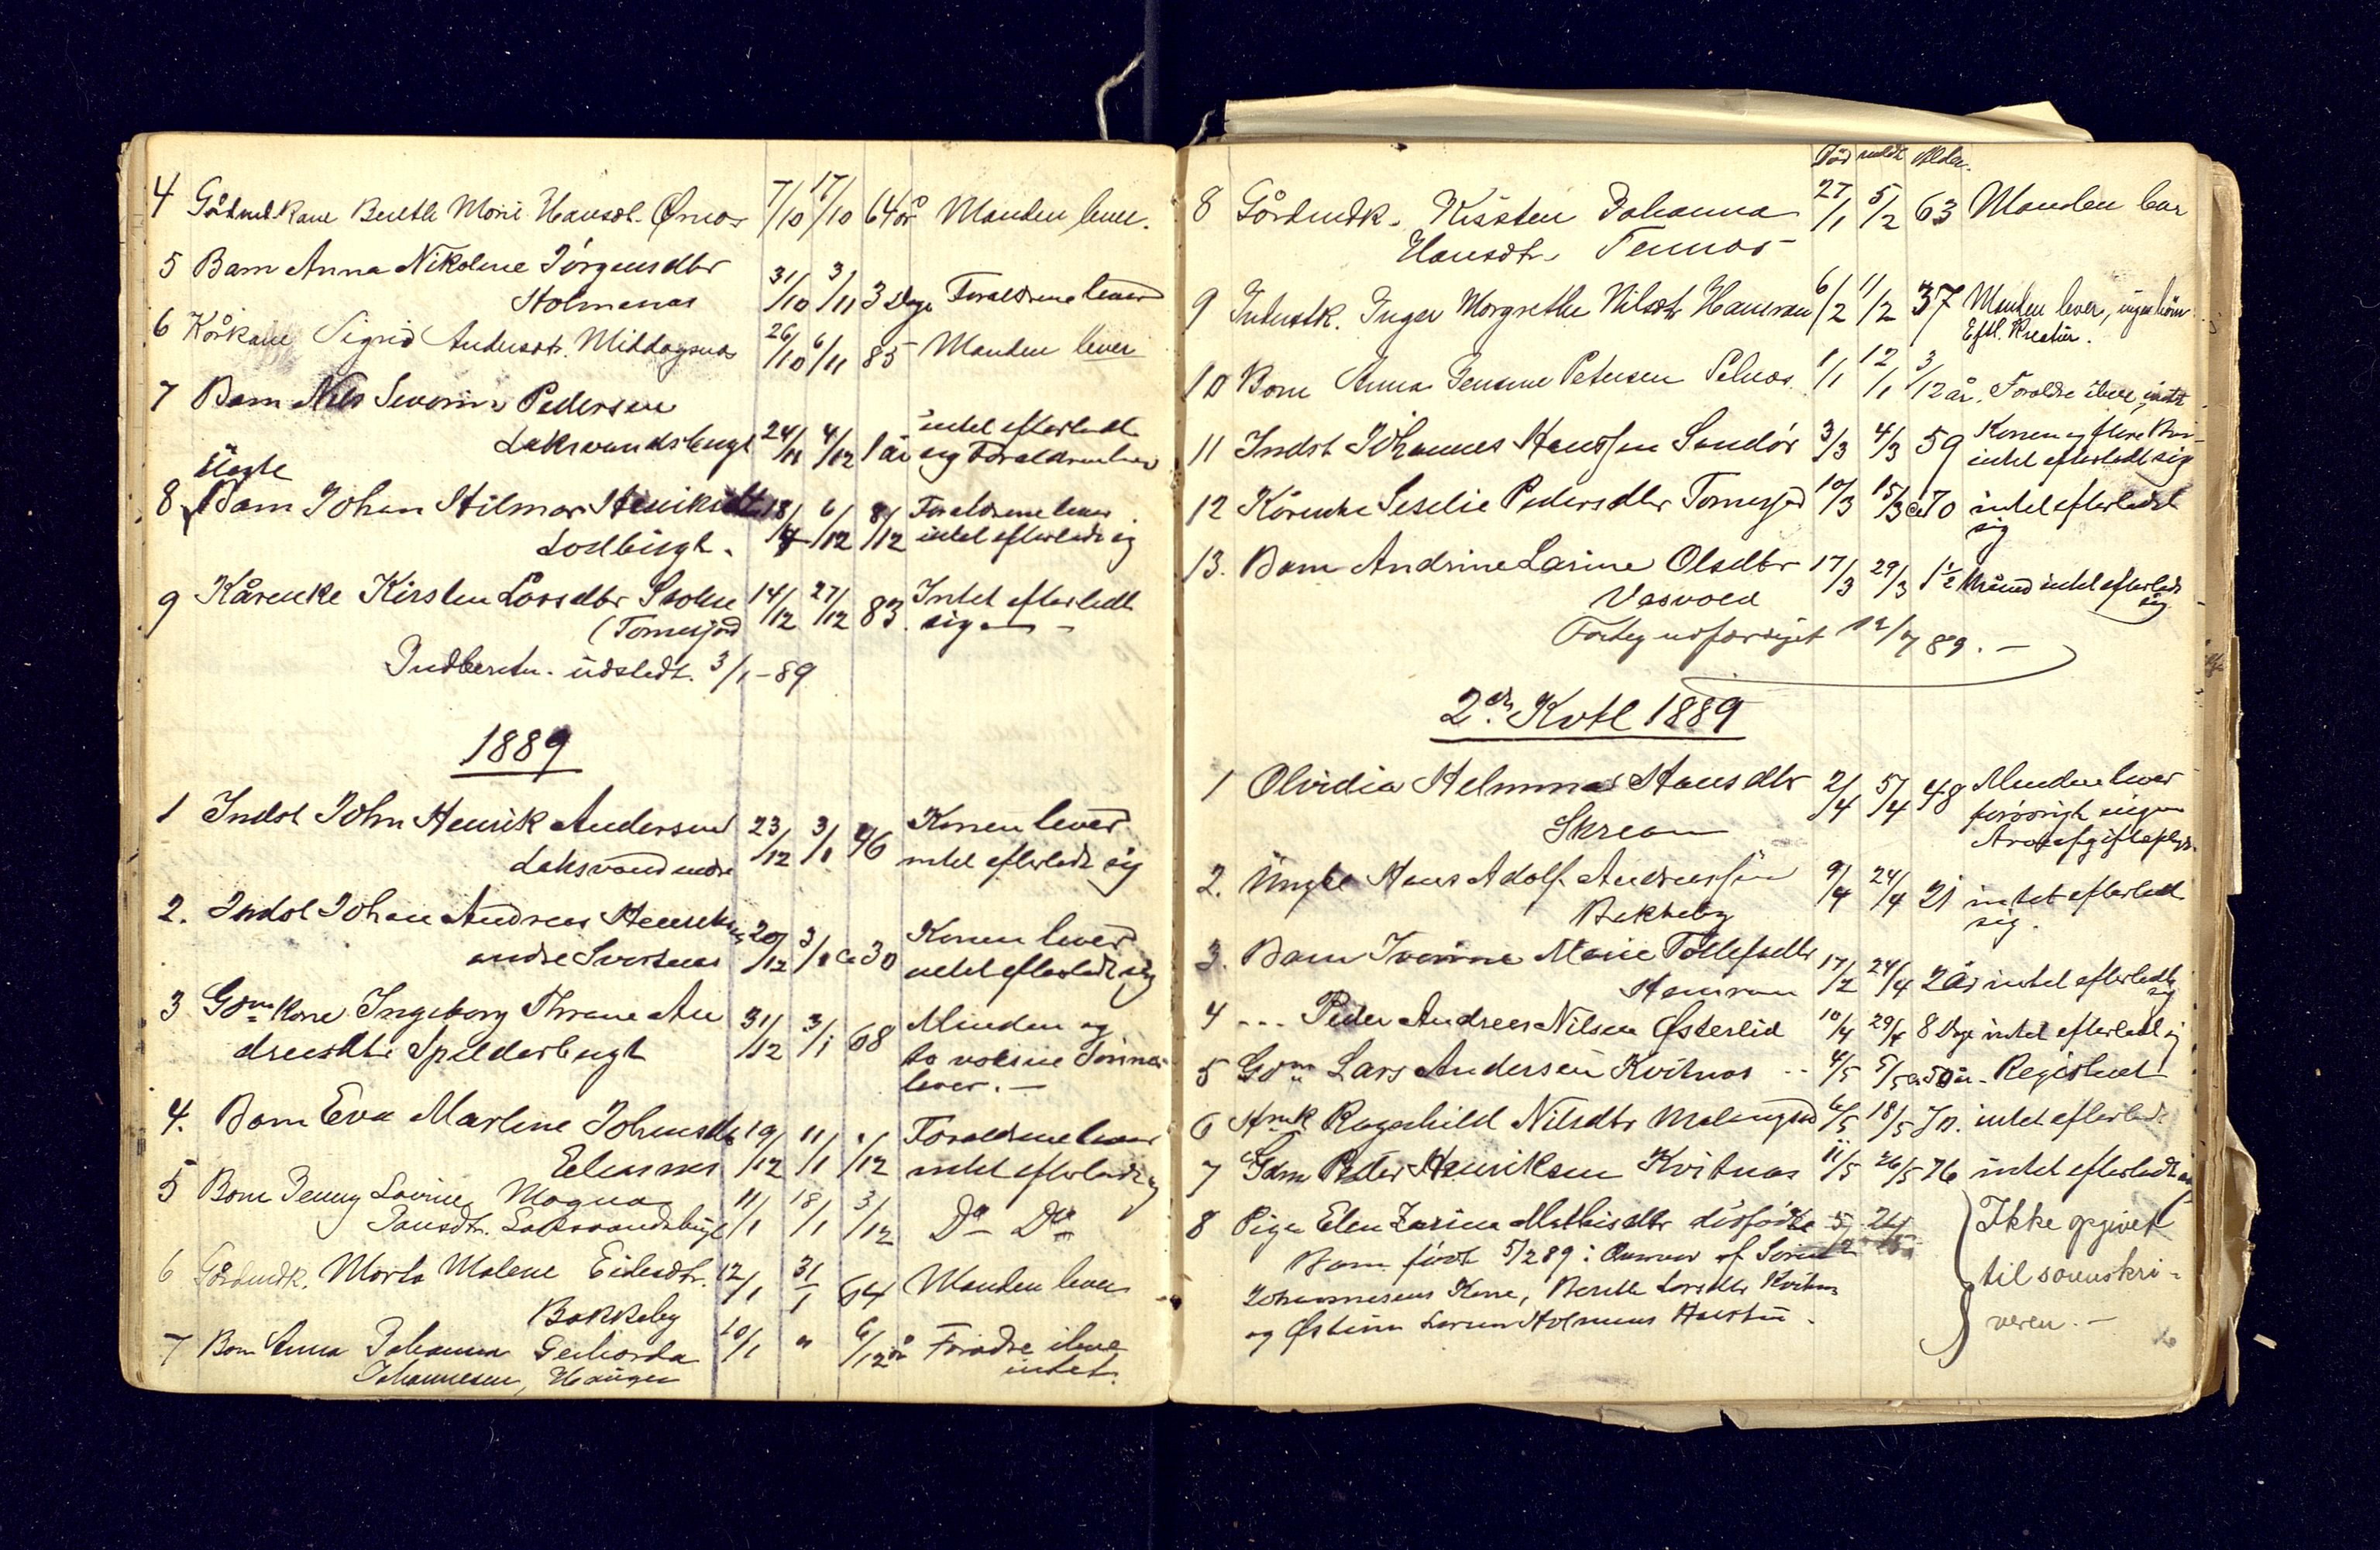 4 Gårdmd. Kane Berethe Marie Hansdt. Ørnæs 7/10 17/10 64 år Manden lever.
5 Barn Anna Nikoline Jörgensdtr
Holmenæs 31/10 3/11 3 Dage Forældrene lever
6 Kårkane Sigrid Andersdt. Middagsnæs 26/10 6/11 85 Manden lever
7 Barn Nils Severin Pedersen
Laksvandsbugt 24/11 4/12 1 år intet efterladt
sig Forældrene lever
8 Barn Johan Hilmar 18/ 6/12 8/12 Forældrene lever
intet efterladt sig
9 Kårenke Kirsten Larsdtr 14/12 27/12 83. Intet efterladt
(Tomasjord sig —
Indberetn. udstedt. 3/1 - 89
1889
1 Indst John Henrik Andersen 23/12 3/1 Konen lever
Laksvand indre intet efterladt sig
2. Indst Johan Andreas 20/12 3/1 Ca 30 Konen lever
intet efterladt sig
3 Gdm Kone Ingeborg Thrane An 31/12 3/1 68 Manden og
dreasdtr Spilderbugt to voxne Sønner
lever. —
4. Barn Eva Marline Johnsdtr 19/12 11/1 1/12 Forældrene lever
intet efterladt sig
5 Barn Jenny Lovine Magna 11/1 18/1 3/12 Do Do
Jansdtr. Laksvandsbugt
6 Gårdmdk. Marta Malene Eidesdtr. 12/1 31/1 64 Manden lever
Bakkeby
7 Barn Anna Johanna 10/1 " 6/12 år Forældre ilive
Johannesen, Haugen intet.
Död muldt Alder.
8 Gårdmdk. Kirsten Johanna 27/1 5/2 63 Manden lever
Hansdtr. Tennæs
9 Inderstk. Inger Margrethe Nilsdtr Hamran 6/2 11/2 37 Manden lever, ingen börn
Eftl. Kreatur.
10 Barn Anna Jensine Petersen Selnæs. 1/1 12/1 3/12 år. Forældre ilive, intet
11 Indst Johannes Hanssen Sandör 3/3 4/3 59 Konen og flere Börn
intet efterladt sig
12 Kårenke Seselie Pedersdtr Tomasjord 10/3 15/3 Ca 70 intet efterladt
sig
13. Barn Andrine Larine Olsdtr 17/3 29/3 1½ Måned intet efterladt
Vasvold sig
Forteg udfærdiget 12/4 89. —
2det Kvtl 1889
1 Olvidia Helmina Hansdtr 2/4 5/4 48 Manden lever
forövrigt ingen
Arveafgiftspligt.
2. Ungke Hans Adolf Andreassen 9/4 24/4 21 intet efterladt
Bekkeby sig.
3. Barn Ivarine Marie Tollefsdtr
Hamran 17/2 24/4 2 år intet efterladt
sig
4 --- Peder Andreas Nilsen Østerlid 10/4 29/4 8 Dage intet efterladt sig
5 Gdm Lars Andersen Kvitnæs -- 4/5 5/5 Ca 50 år. Registreret
6 Ragnhild Nilsdtr Malangsed 6/5 18/5 70. intet efterladt
7 Gdm Peder Henriksen Kvitnæs 11/5 26/5 76 intet efterladt sig
8 Pige Elen Zarina Mathisdtr dödfödte 5/
Barn födt 5/2 89: af
Johannesens Kone, Berethe Larsdtr Kvitnæs
og Østinn Larsen Holmenæs
Ikke opgivet
til sorenskri-
veren. —